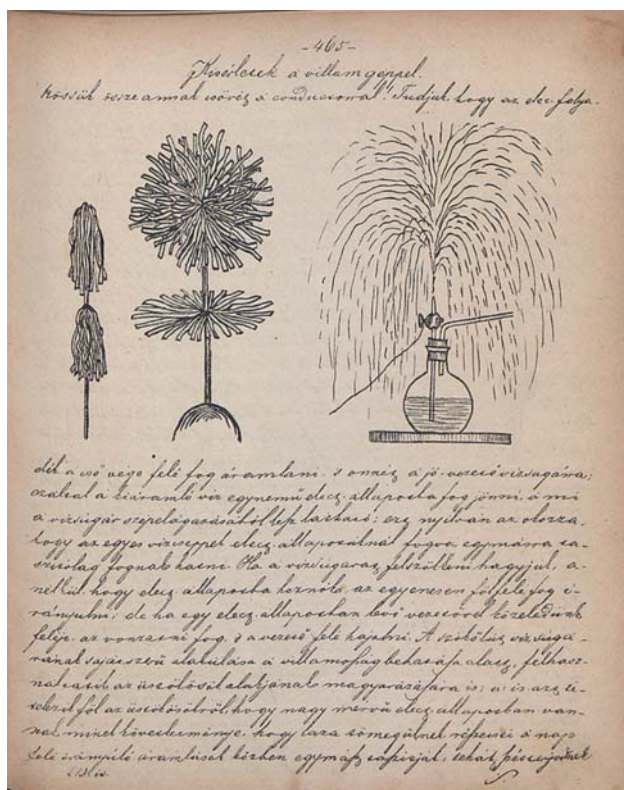 -465-
Kisérletek a villamgéppel.
kössük össze annak csövét a conductorral. Tudjuk, hogy az elec. folya-
dék a cső vége felé fog áramlani. s onnét a jó vezető vizsugárra;
azáltal a kiáramló viz egynemű elec. állapotba fog jönni, a mi
a vizsugár szétágazásából lesz látható; ez nyilván az okozza,
hogy az egyes vizcseppek elec. állapotuknál fogva egymásra ta-
szitólag fognak hatni. Ha a vizsugarat felszölleni hagyjuk, a-
nélkül, hogy elec. állapotba hoznók, az egyenesen fölfelé fog i-
rányulni; de ha egy elec. állapotban levő vezetővel közeledünk
feléje az vonzatni fog, s a vezető felé hajolni. A szökőkut vizsuga-
rának sajátszerű alakulása a villamosság behatása alatt, felhasz-
náltatik az üstökösök alakjának magyarázására is; u. is azt té-
telezik föl az üstökösökről, hogy nagy mérvű elec. állapotban van-
nak minek következménye, hogy laza tömegüknek részecséi a nap
felé irányuló áramlásuk közben egymást taszitják, tehát